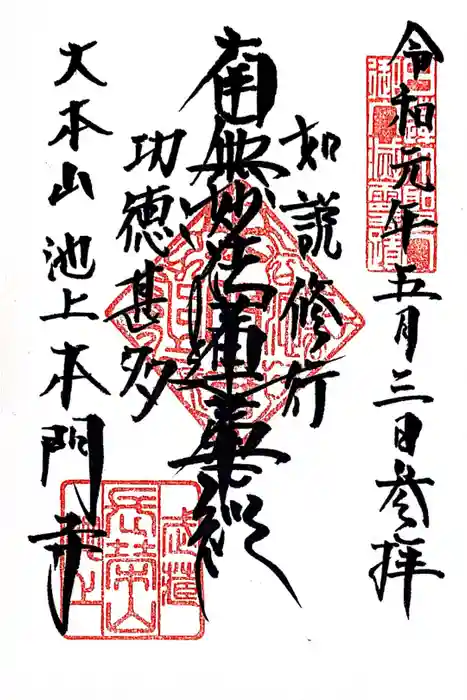 令和元年五月三日参拝
如説修行
南無妙法蓮華経
功徳甚多
大本山 池上本門寺
長栄山